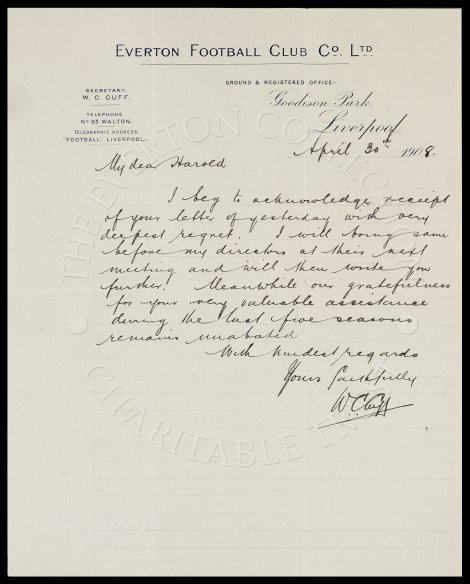 EVERTON FOOTBALL CLUB CO. LTD.
GROUND & REGISTERED OFFICE:-
SECRETARY.
W. C. CUFF.
TELEPHONE
NO 63 WALTON.
TELEGRAPHIC ADDRESS,
"FOOTBALL", LIVERPOOL.
Goodison Park,
Liverpool,
April 30th 1908.
My dear Harold
I beg to acknowledge receipt
of your letter of yesterday with very
deepest regret. I will bring same
before my directors at their next
meeting and will then write you
further. Meanwhile our gratefulness
for your very valuable assistance
during the last five seasons
remains unabated
With kindest regards
Yours faithfully
W.C. Cuff
THE EVERTON COLLECTION
CHARITABLE TRUST